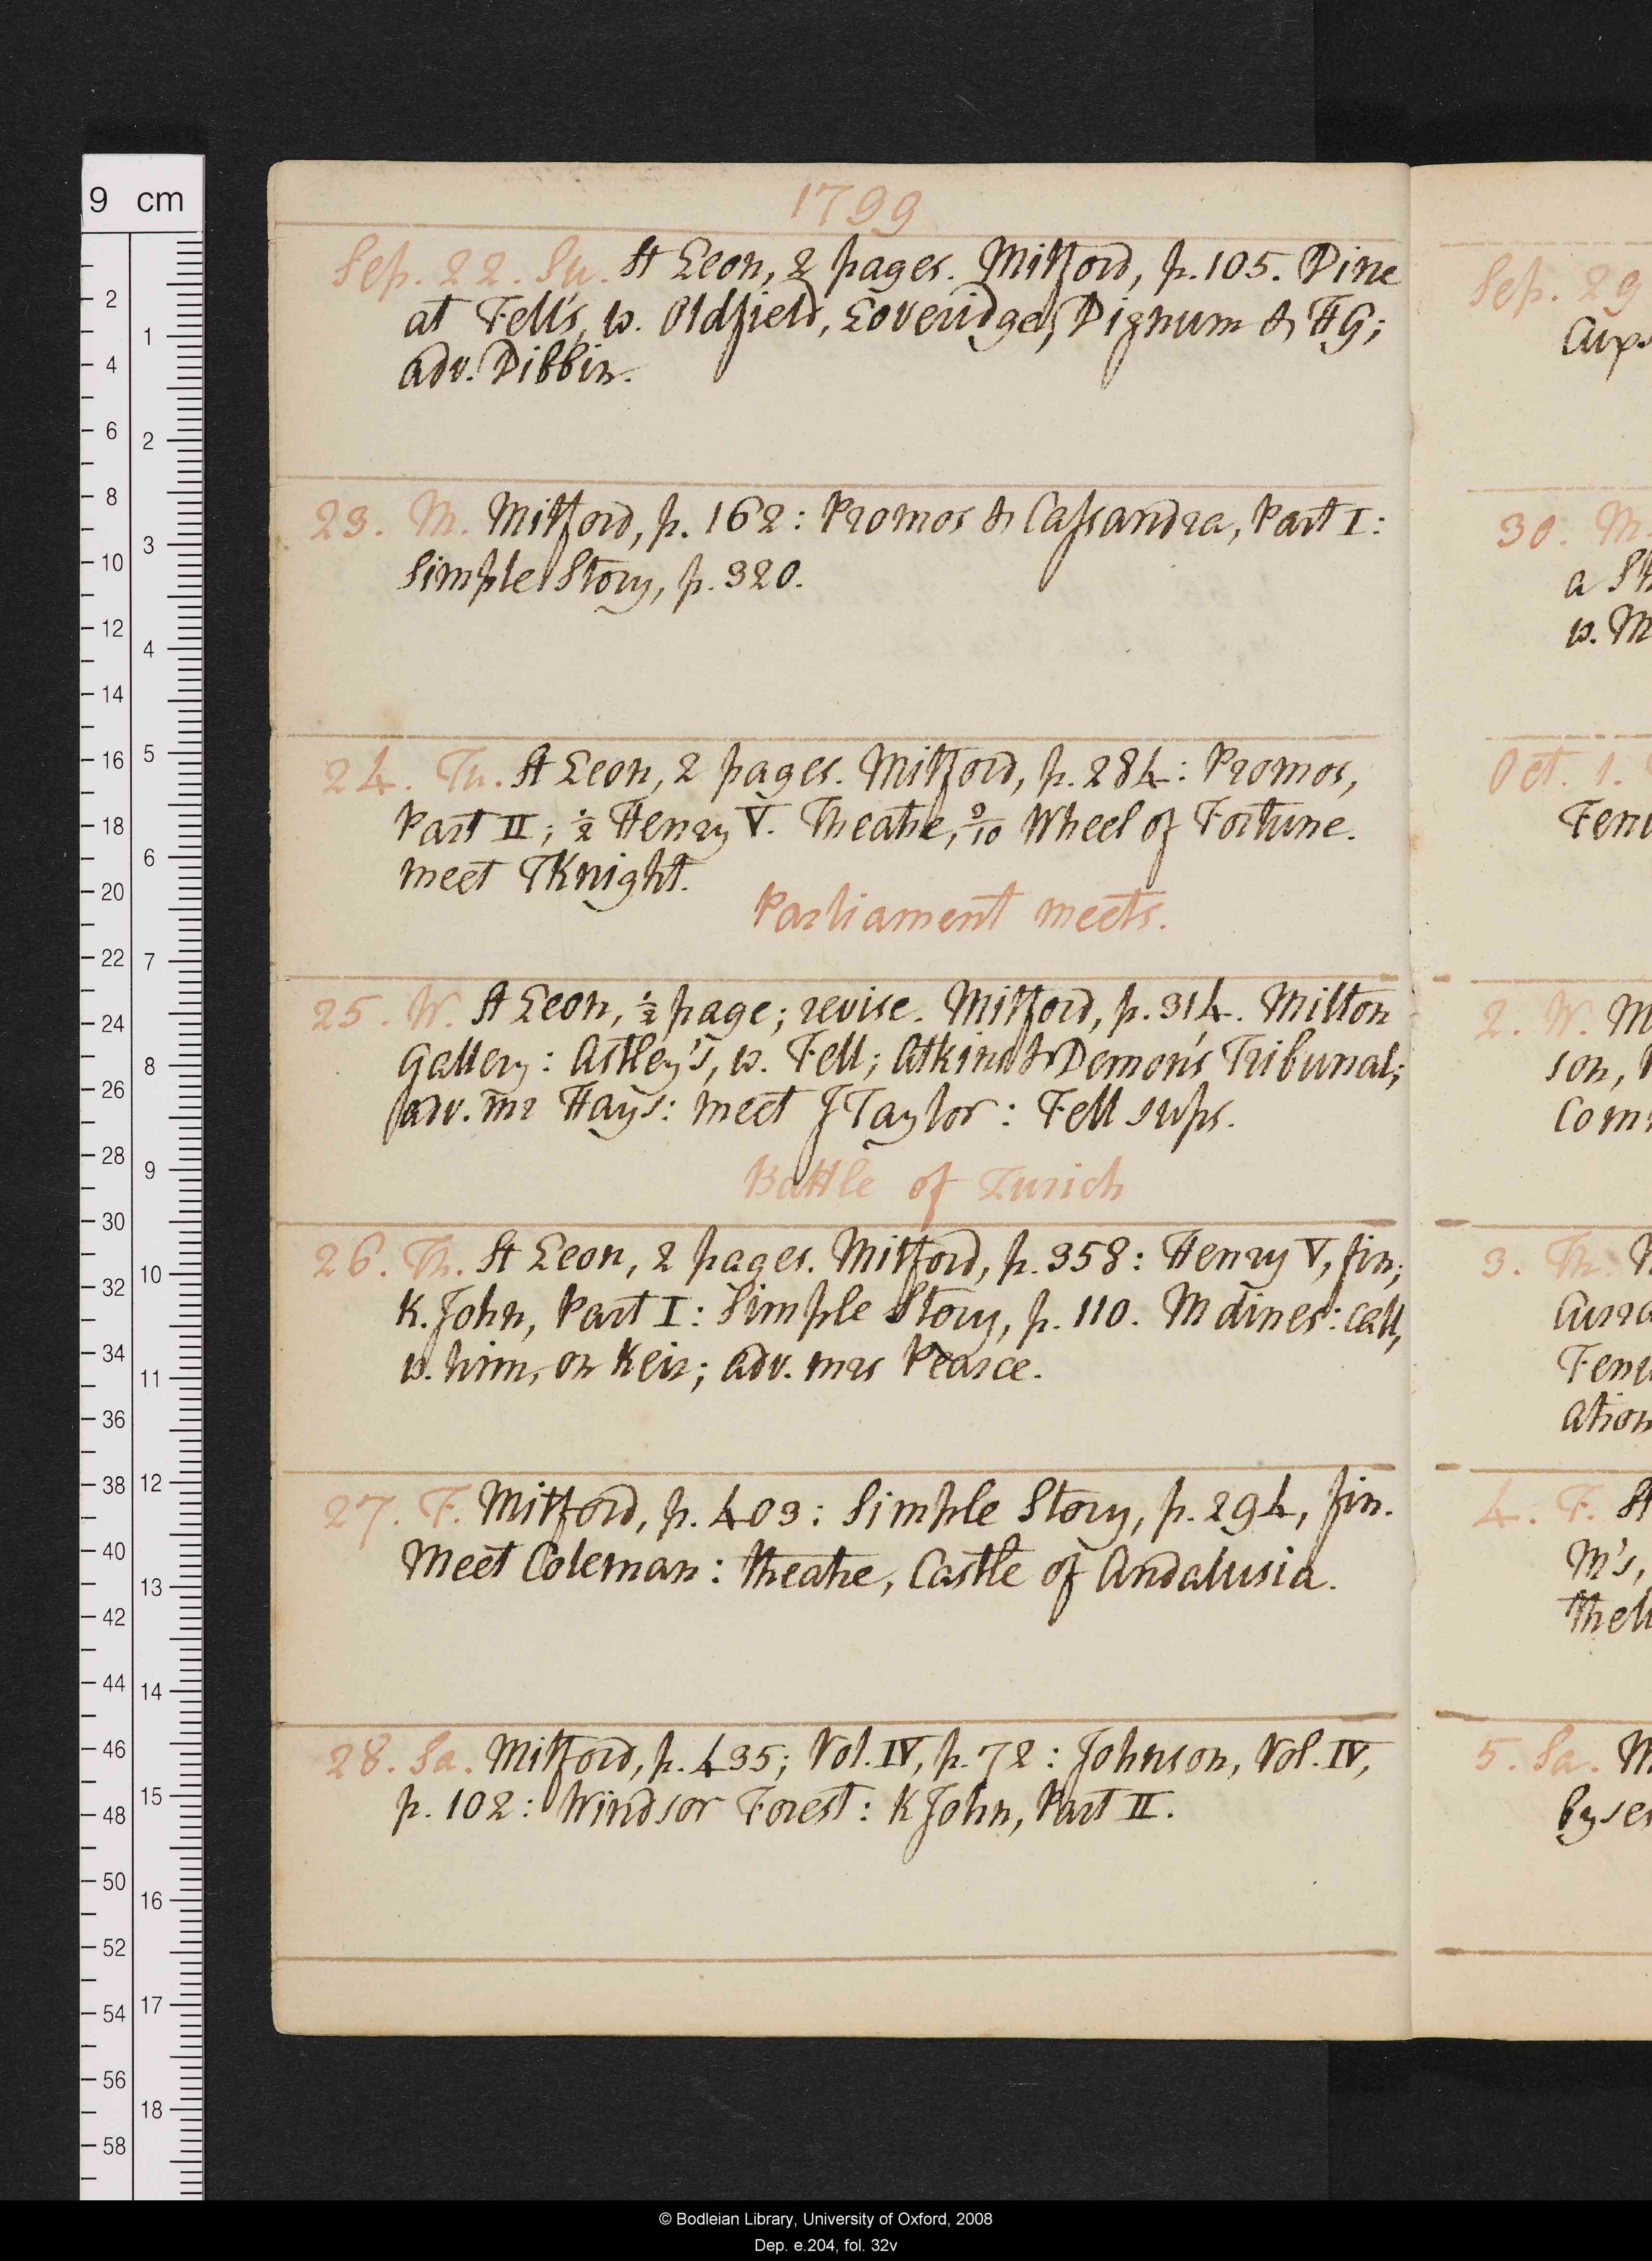 1799
Sep. 22. Su. St Leon, 2 pages. Mitford, p. 105. Dine
at Fell's, w. Oldfield, Loveridge, Dignum & HG;
adv. Dibbin.
23. M. Mitford, p. 162: Promos & Cassandra, Part I:
Simple Story, p. 320.
24. Tu. St Leon, 2 pages. Mitford, p. 284: Promos,
Part II; ½ Henry V. Theatre, 9/10 Wheel of Fortune.
meet TKnight.
Parliament meets.
25. W. St Leon, ½ page; revise. Mitford, p. 314. Milton
Gallery: Astley's, w. Fell; Atkins & Demon's Tribunal;
adv. mr Hays: meet JTaylor: Fell sups.
Battle of Zurich
26. Th. St Leon, 2 pages. Mitford, p. 358: Henry V, fin;
K. John, Part I: Simple Story, p. 110. M dines: call,
w. him, on Keir; adv. mrs Pearce.
27. F. Mitford, p. 403: Simple Story, p. 294, fin.
Meet Coleman: theatre, Castle of Andalusia.
28. Sa. Mitford, p. 435; Vol. IV, p. 72: Johnson, Vol. IV,
p. 102: Windsor Forest: K John, Part II.
Sep. 29
30. M.
w. M
Oct. 1.
2. W. M
son,
3. Th.
ation
4. F. St
M's,
5. Sa. M
9 cm
2
4
6
8
10
12
14
16
18
20
22
24
26
28
30
32
34
36
38
40
42
44
46
48
50
52
54
56
58
1
2
3
4
5
6
7
8
9
10
11
12
13
14
15
16
17
18
© Bodleian Library, University of Oxford, 2008
Dep. e.204, fol. 32v